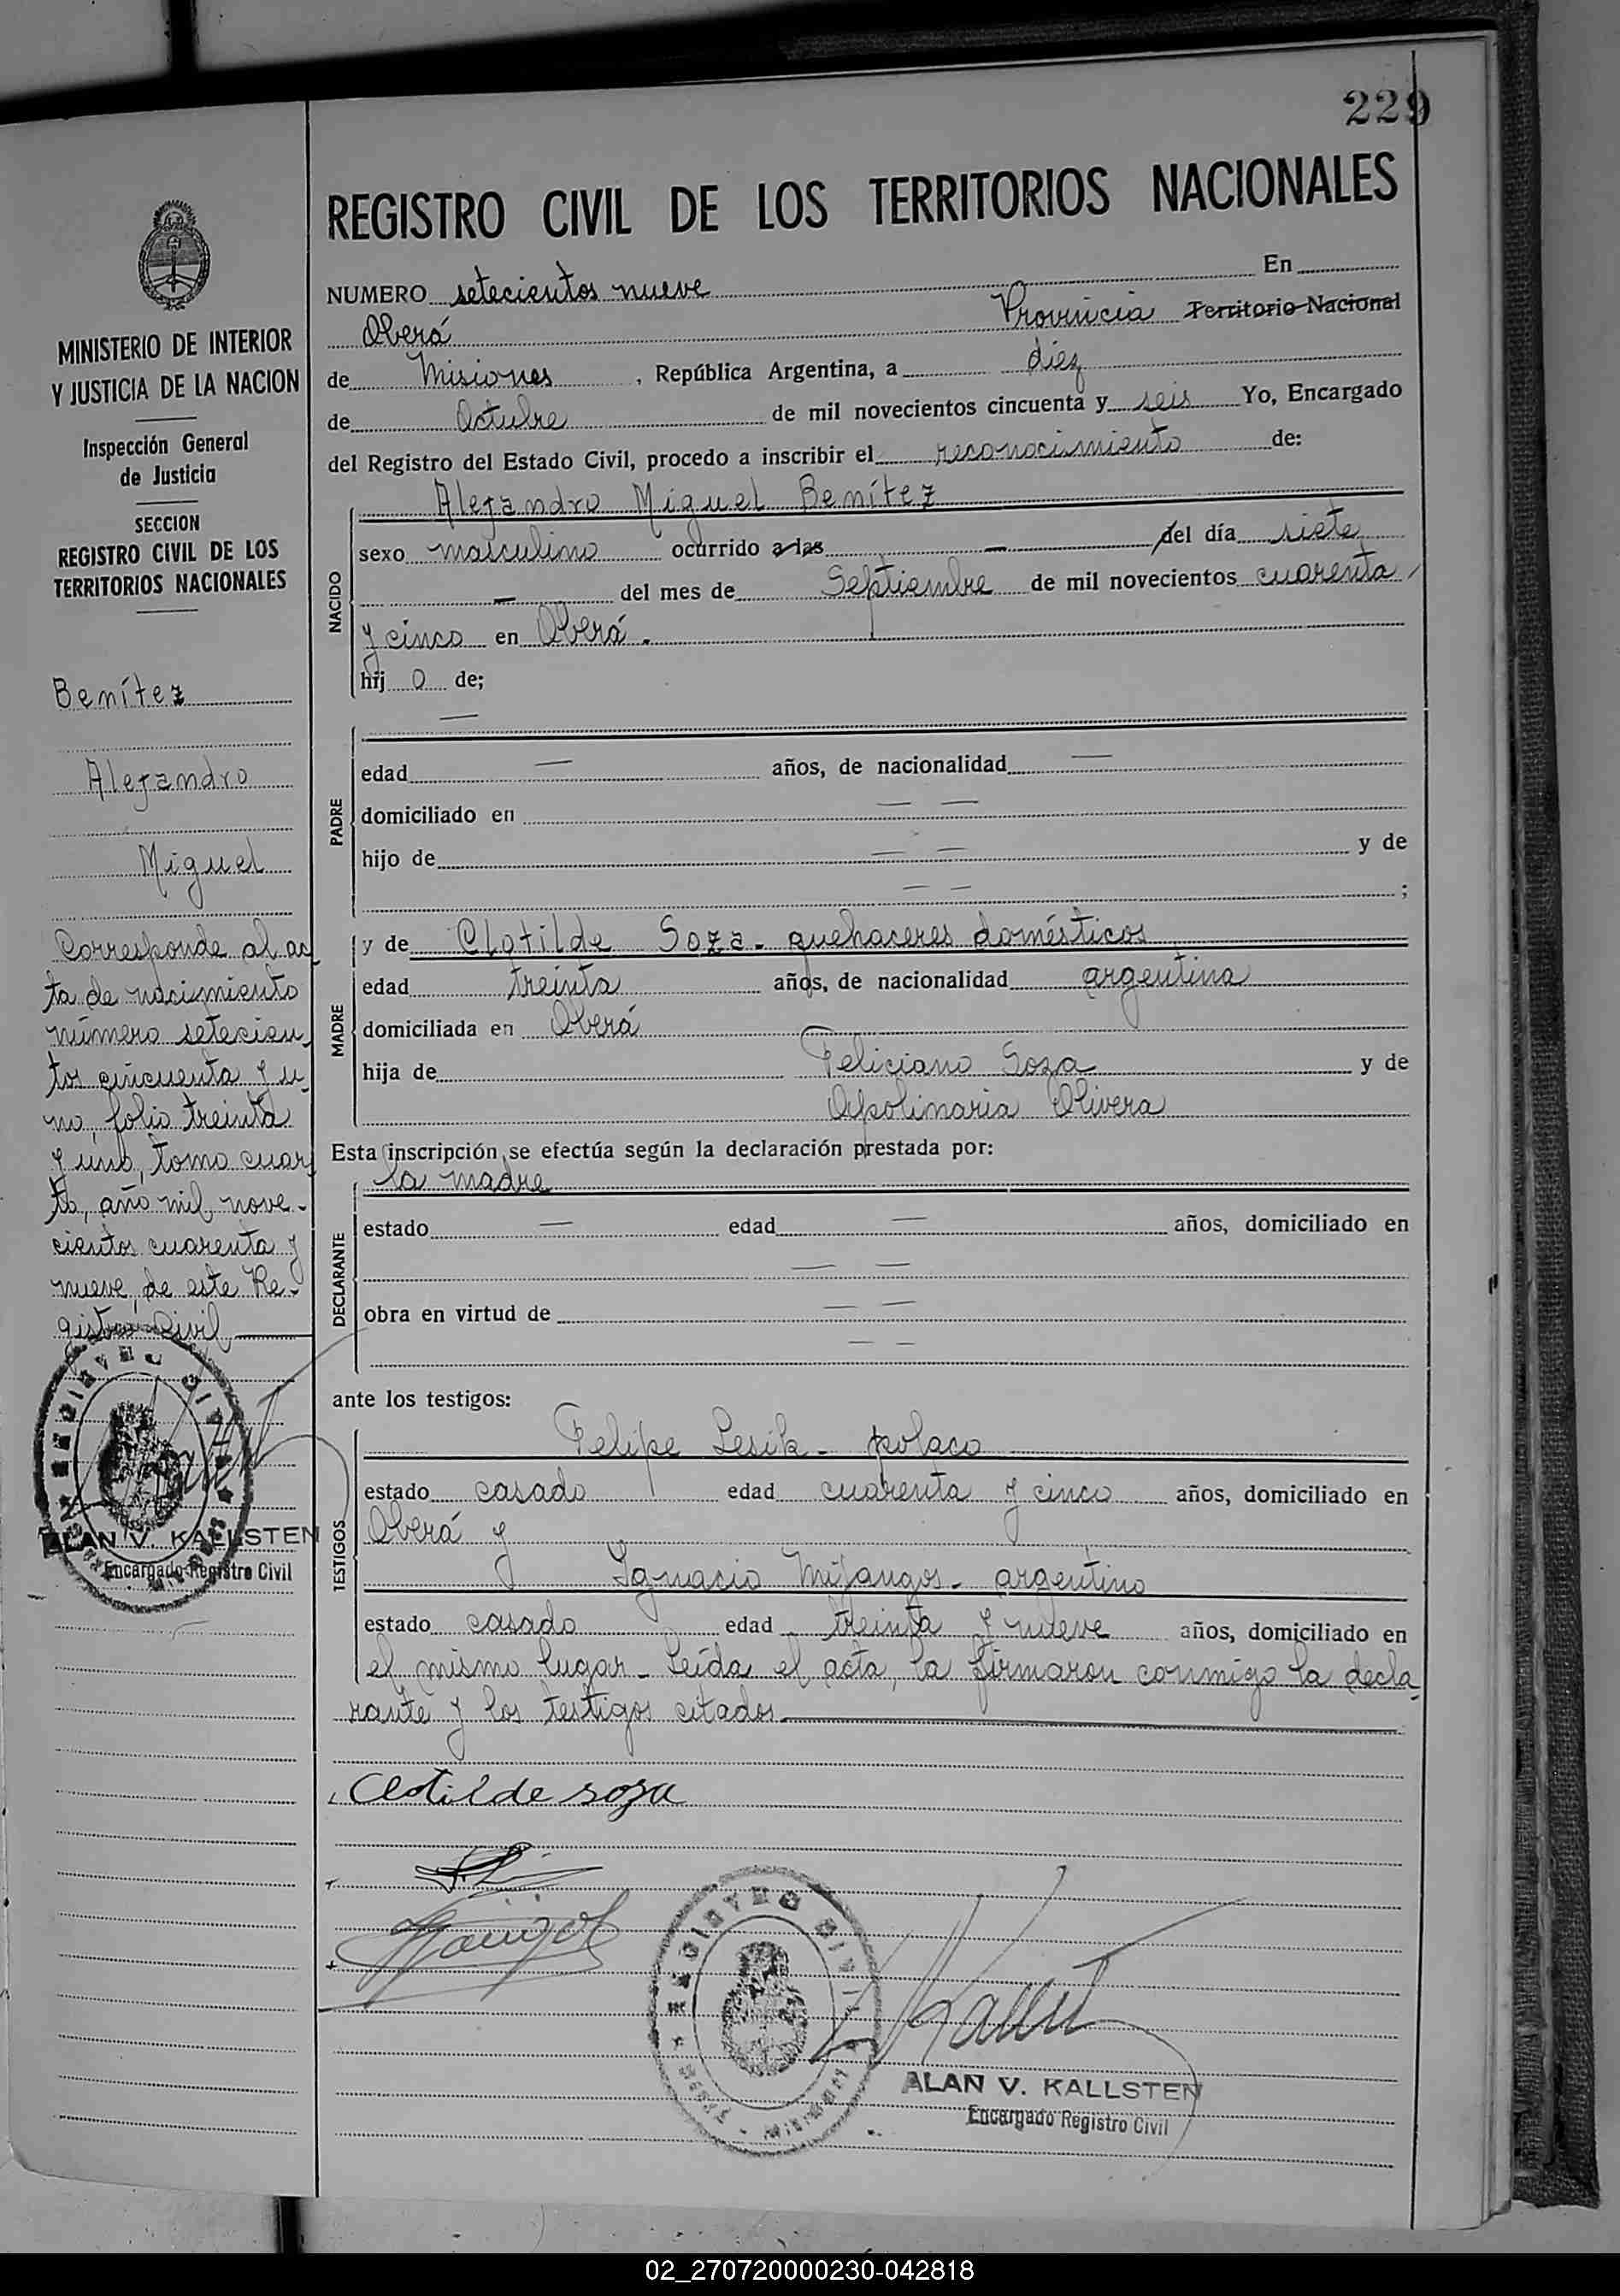 229
REGISTRO CIVIL DE LOS TERRITORIOS NACIONALES
NUMERO setecientos nueve En
Oberá Provincia Territorio Nacional
de Misiones, República Argentina, a diez
de Octubre de mil novecientos cincuenta y seis Yo, Encargado
del Registro del Estado Civil, procedo a inscribir el reconocimiento de:
Alejandro Miguel Benítez
NACIDO
sexo masculino ocurrido a las — del día siete
— del mes de Septiembre de mil novecientos cuarenta
y cinco en Oberá.
hij o de;
PADRE
—
edad — años, de nacionalidad —
domiciliado en — —
hijo de — — y de
— — ;
MADRE
y de Clotilde Soza - quehaceres domésticos
edad treinta años, de nacionalidad argentina
domiciliada en Oberá
hija de Feliciano Soza y de
Apolinaria Olivera
Esta inscripción se efectúa según la declaración prestada por:
DECLARANTE
la madre
estado — edad — años, domiciliado en
— —
obra en virtud de — —
— —
ante los testigos:
TESTIGOS
Felipe Lesik - polaco
estado casado edad cuarenta y cinco años, domiciliado en
Oberá y
Ignacio Mijangos - argentino
estado casado edad treinta y nueve años, domiciliado en
el mismo lugar - Leída el acta, la firmaron conmigo la decla-
rante y los testigos citados.
Clotilde soza
REGISTRO CIVIL
ALAN V. KALLSTEN
Encargado Registro Civil
MINISTERIO DE INTERIOR
Y JUSTICIA DE LA NACION
Inspección General
de Justicia
SECCION
REGISTRO CIVIL DE LOS
TERRITORIOS NACIONALES
Benítez
Alejandro
Miguel
Corresponde al ac
ta de nacimiento
número setecien-
tos cincuenta y u-
no, folio treinta
y uno, tomo cuar
to, año mil nove-
cientos cuarenta y
nueve, de este Re-
gistro Civil
ALAN V. KALLSTEN
Encargado Registro Civil
02_270720000230-042818